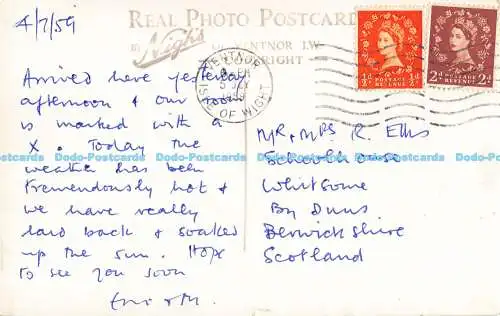 4/7/59
REAL PHOTO POSTCARD
Nigh's
VENTNOR I.W.
VENTNOR
ISLE OF WIGHT
½d POSTAGE REVENUE ½d
2d POSTAGE REVENUE 2d
Arrived here yesterday
afternoon & our room
is marked with a
X. Today the
weather has been
tremendously hot &
we have really
laid back & soaked
up the sun. Hope
to see you soon
MR & MRS R. Ellis
Schoolhouse
Whitsome
By Duns.
Berwickshire
Scotland
Dodo-Postcards Dodo-Postcards Dodo-Postcards Dodo-Postcards